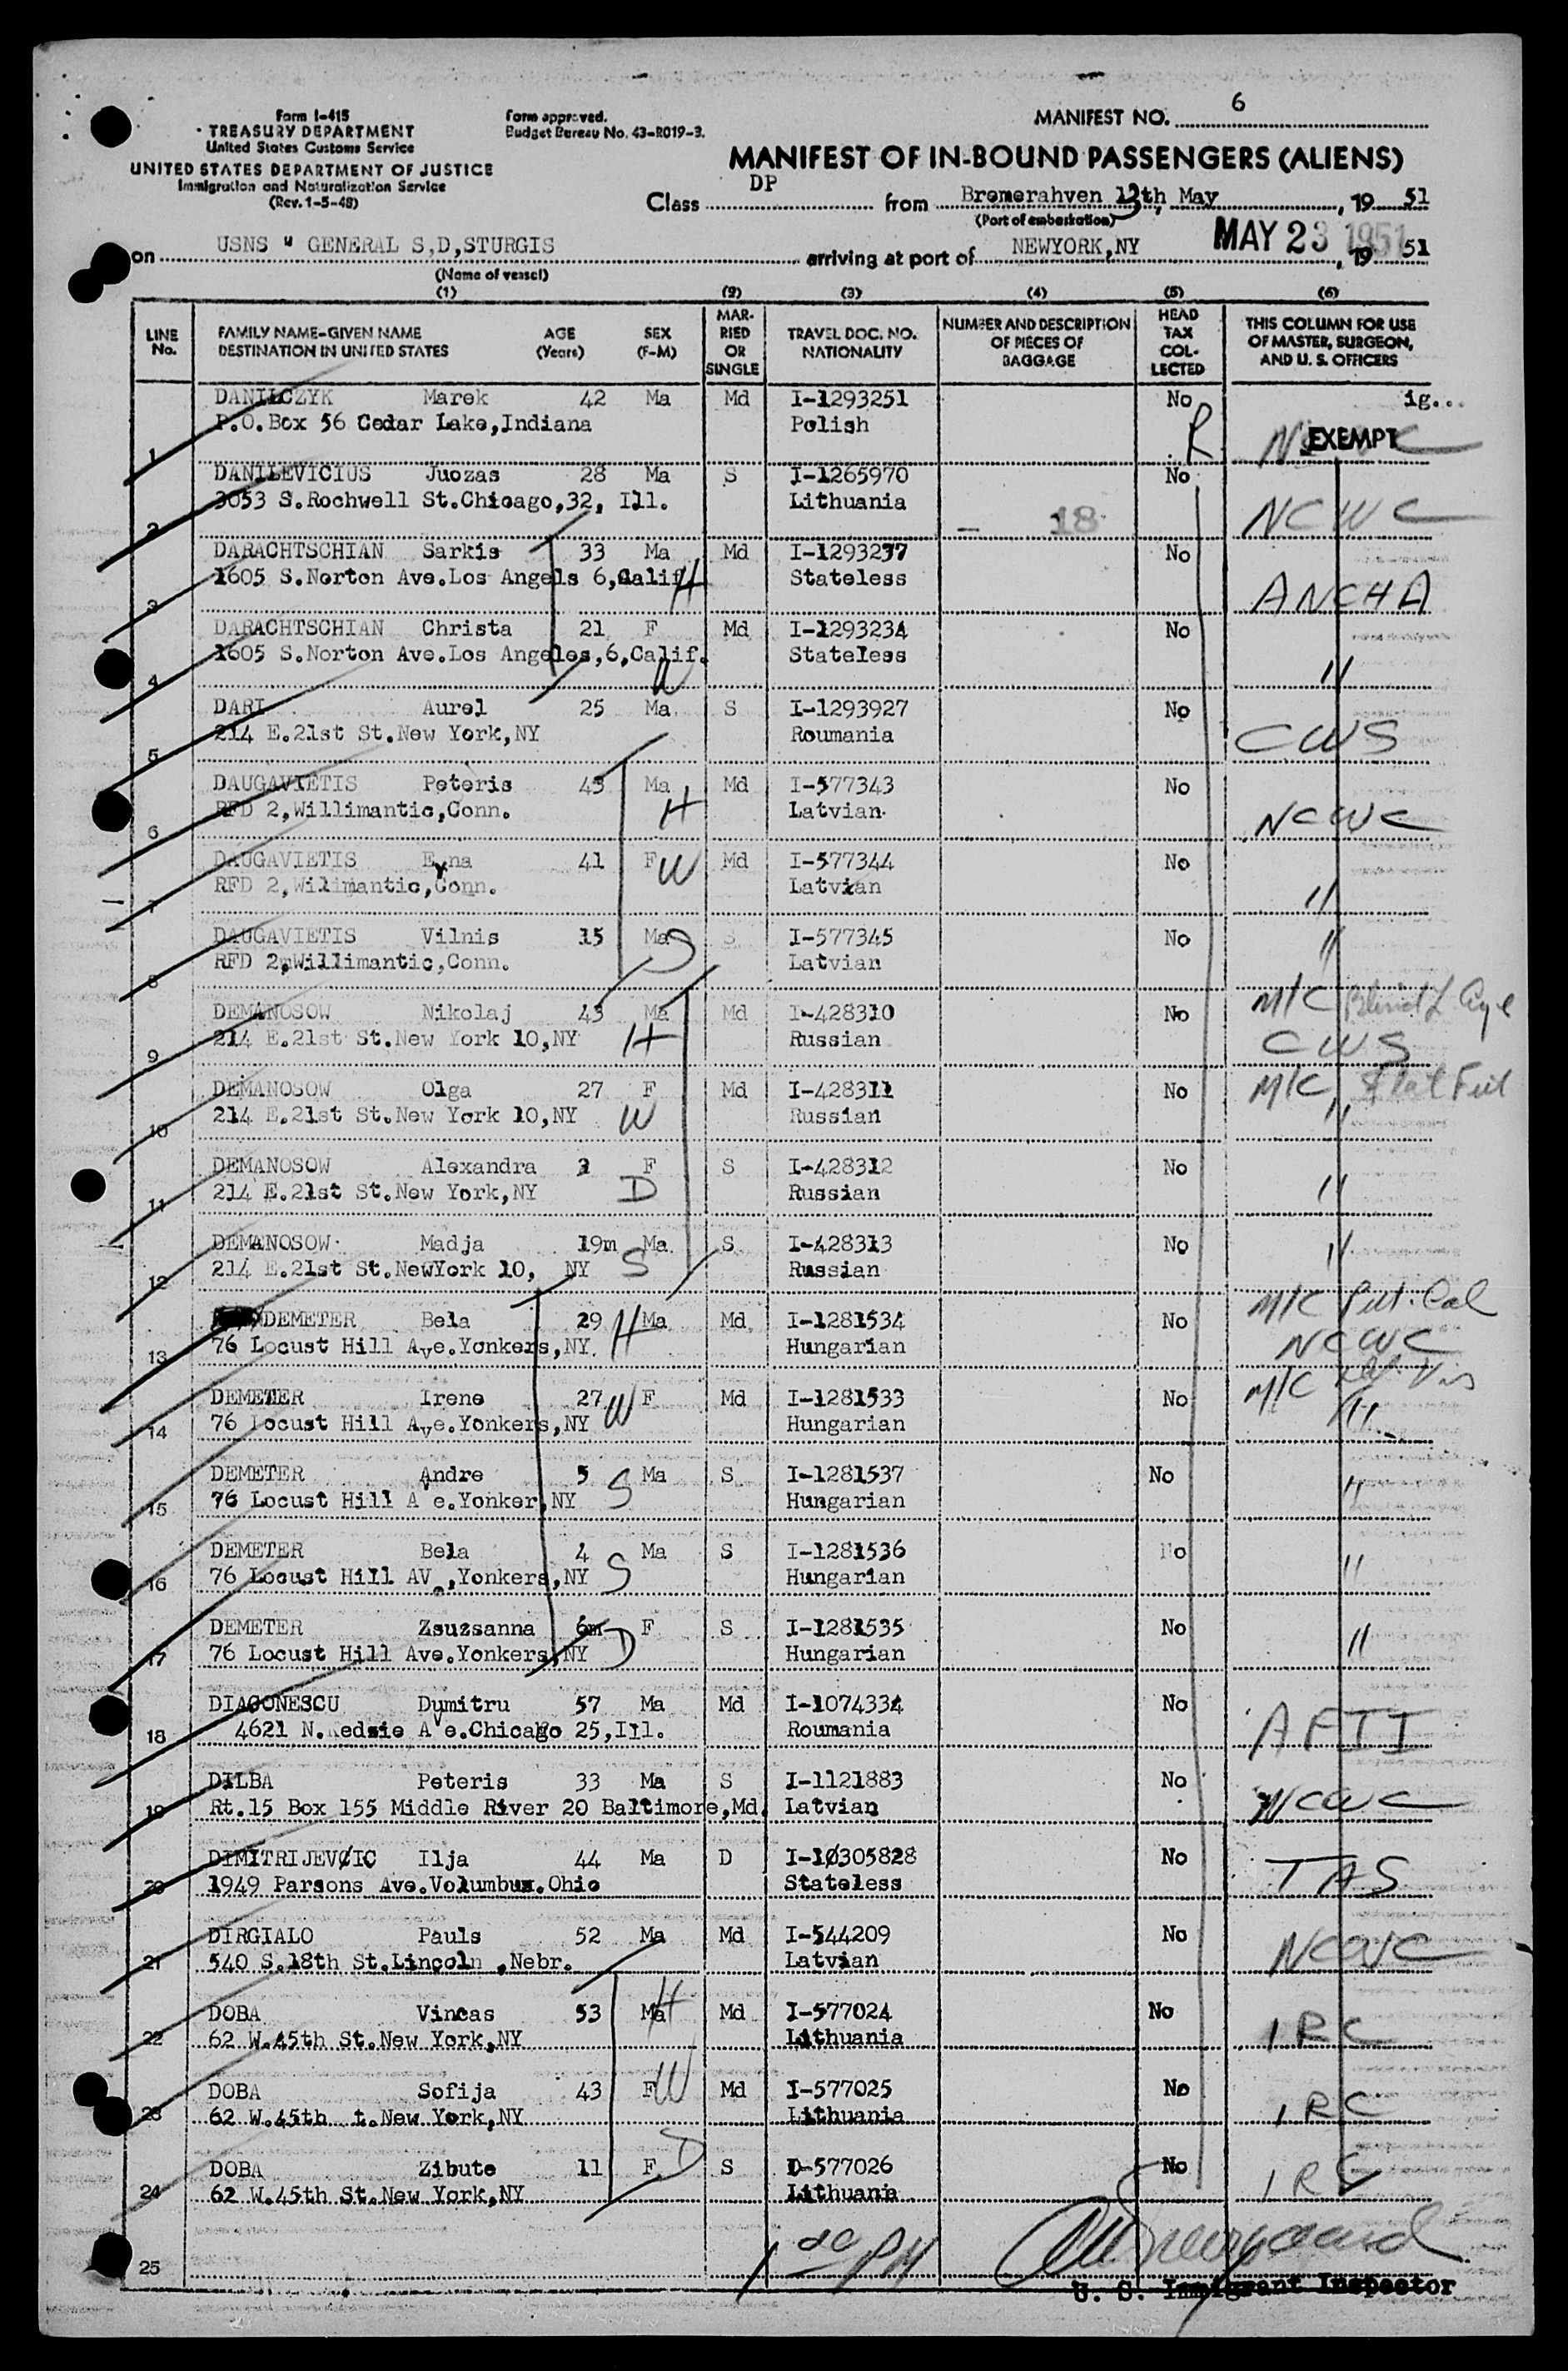 Form I-415
TREASURY DEPARTMENT
United States Customs Service
UNITED STATES DEPARTMENT OF JUSTICE
Immigration and Naturalization Service
(Rev. 1-5-48)
Form approved.
Budget Bureau No. 43-R019-3.
MANIFEST NO. 6
MANIFEST OF IN-BOUND PASSENGERS (ALIENS)
Class DP from Bremerahven 13th, May, 19 51
(Port of embarkation)
on USNS " GENERAL S,D,STURGIS arriving at port of NEWYORK,NY MAY 23 1951, 19 51
(Name of vessel)
(1) (2) (3) (4) (5) (6)
LINE No. FAMILY NAME-GIVEN NAME DESTINATION IN UNITED STATES AGE (Years) SEX (F-M) MARRIED OR SINGLE TRAVEL DOC. NO. NATIONALITY NUMBER AND DESCRIPTION OF PIECES OF BAGGAGE HEAD TAX COLLECTED THIS COLUMN FOR USE OF MASTER, SURGEON, AND U. S. OFFICERS
DANILCZYK Marek 42 Ma Md I-1293251 No ig...
1 P.O.Box 56 Cedar Lake,Indiana Polish R EXEMPT
DANILEVICIUS Juozas 28 Ma S I-1265970 No
2 3053 S.Rochwell St.Chicago,32, Ill. Lithuania - 18 NCWC
DARACHTSCHIAN Sarkis 33 Ma Md I-1293237 No
3 1605 S.Norton Ave.Los Angels 6,Calif H Stateless ANCHA
DARACHTSCHIAN Christa 21 F Md I-1293234 No
4 1605 S.Norton Ave.Los Angeles,6,Calif. W Stateless "
DARI Aurel 25 Ma S I-1293927 No
5 214 E.21st St.New York,NY Roumania CWS
DAUGAVIETIS Peteris 43 Ma Md I-577343 No
6 RFD 2,Willimantic,Conn. H Latvian NCWC
DAUGAVIETIS Erna 41 F W Md I-577344 No
7 RFD 2,Wilimantic,Conn. Latvian "
DAUGAVIETIS Vilnis 15 Ma S S I-577345 No "
8 RFD 2,Willimantic,Conn. Latvian
DEMANOSOW Nikolaj 43 Ma Md I-428310 No M/C Blind L Eye
9 214 E.21st St.New York 10,NY H Russian CWS
DEMANOSOW Olga 27 F Md I-428311 No M/C Flat Feet
10 214 E.21st St.New York 10,NY W Russian "
DEMANOSOW Alexandra 3 F S I-428312 No
11 214 E.21st St.New York,NY D Russian "
DEMANOSOW Madja 19m Ma S I-428313 No "
12 214 E.21st St.NewYork 10, NY S Russian
DEMETER Bela 29 H Ma Md I-1281534 No M/C Pul. Cal
13 76 Locust Hill Ave.Yonkers,NY. Hungarian NCWC
DEMETER Irene 27 W F Md I-1281533 No M/C Def. Vis
14 76 Locust Hill Ave.Yonkers,NY Hungarian "
DEMETER Andre 5 Ma S I-1281537 No
15 76 Locust Hill Ave.Yonker,NY S Hungarian "
DEMETER Bela 4 Ma S I-1281536 No
16 76 Locust Hill AVe,Yonkers,NY S Hungarian "
DEMETER Zsuzsanna 6m F S I-1281535 No
17 76 Locust Hill Ave.Yonkers,NY D Hungarian "
DIAGONESCU Dumitru 57 Ma Md I-1074334 No
18 4621 N.Kedzie Ave.Chicago 25,Ill. Roumania AFII
DILBA Peteris 33 Ma S I-1121883 No
19 Rt.15 Box 155 Middle River 20 Baltimore,Md. Latvian NCWC
DIMITRIJEVØIC Ilja 44 Ma D I-1Ø305828 No
20 1949 Parsons Ave.Volumbux.Ohio Stateless TAS
DIRGIALO Pauls 52 Ma Md I-544209 No
21 540 S.18th St.Lincoln ,Nebr. Latvian NCWC
DOBA Vincas 53 Ma H Md I-577024 No
22 62 W.45th St.New York,NY Lithuania IRC
DOBA Sofija 43 F W Md I-577025 No
23 62 W.45th t.New York,NY Lithuania IRC
DOBA Zibute 11 F D S D-577026 No
24 62 W.45th St.New York,NY Lithuania IRC
25
U. S. Immigrant Inspector